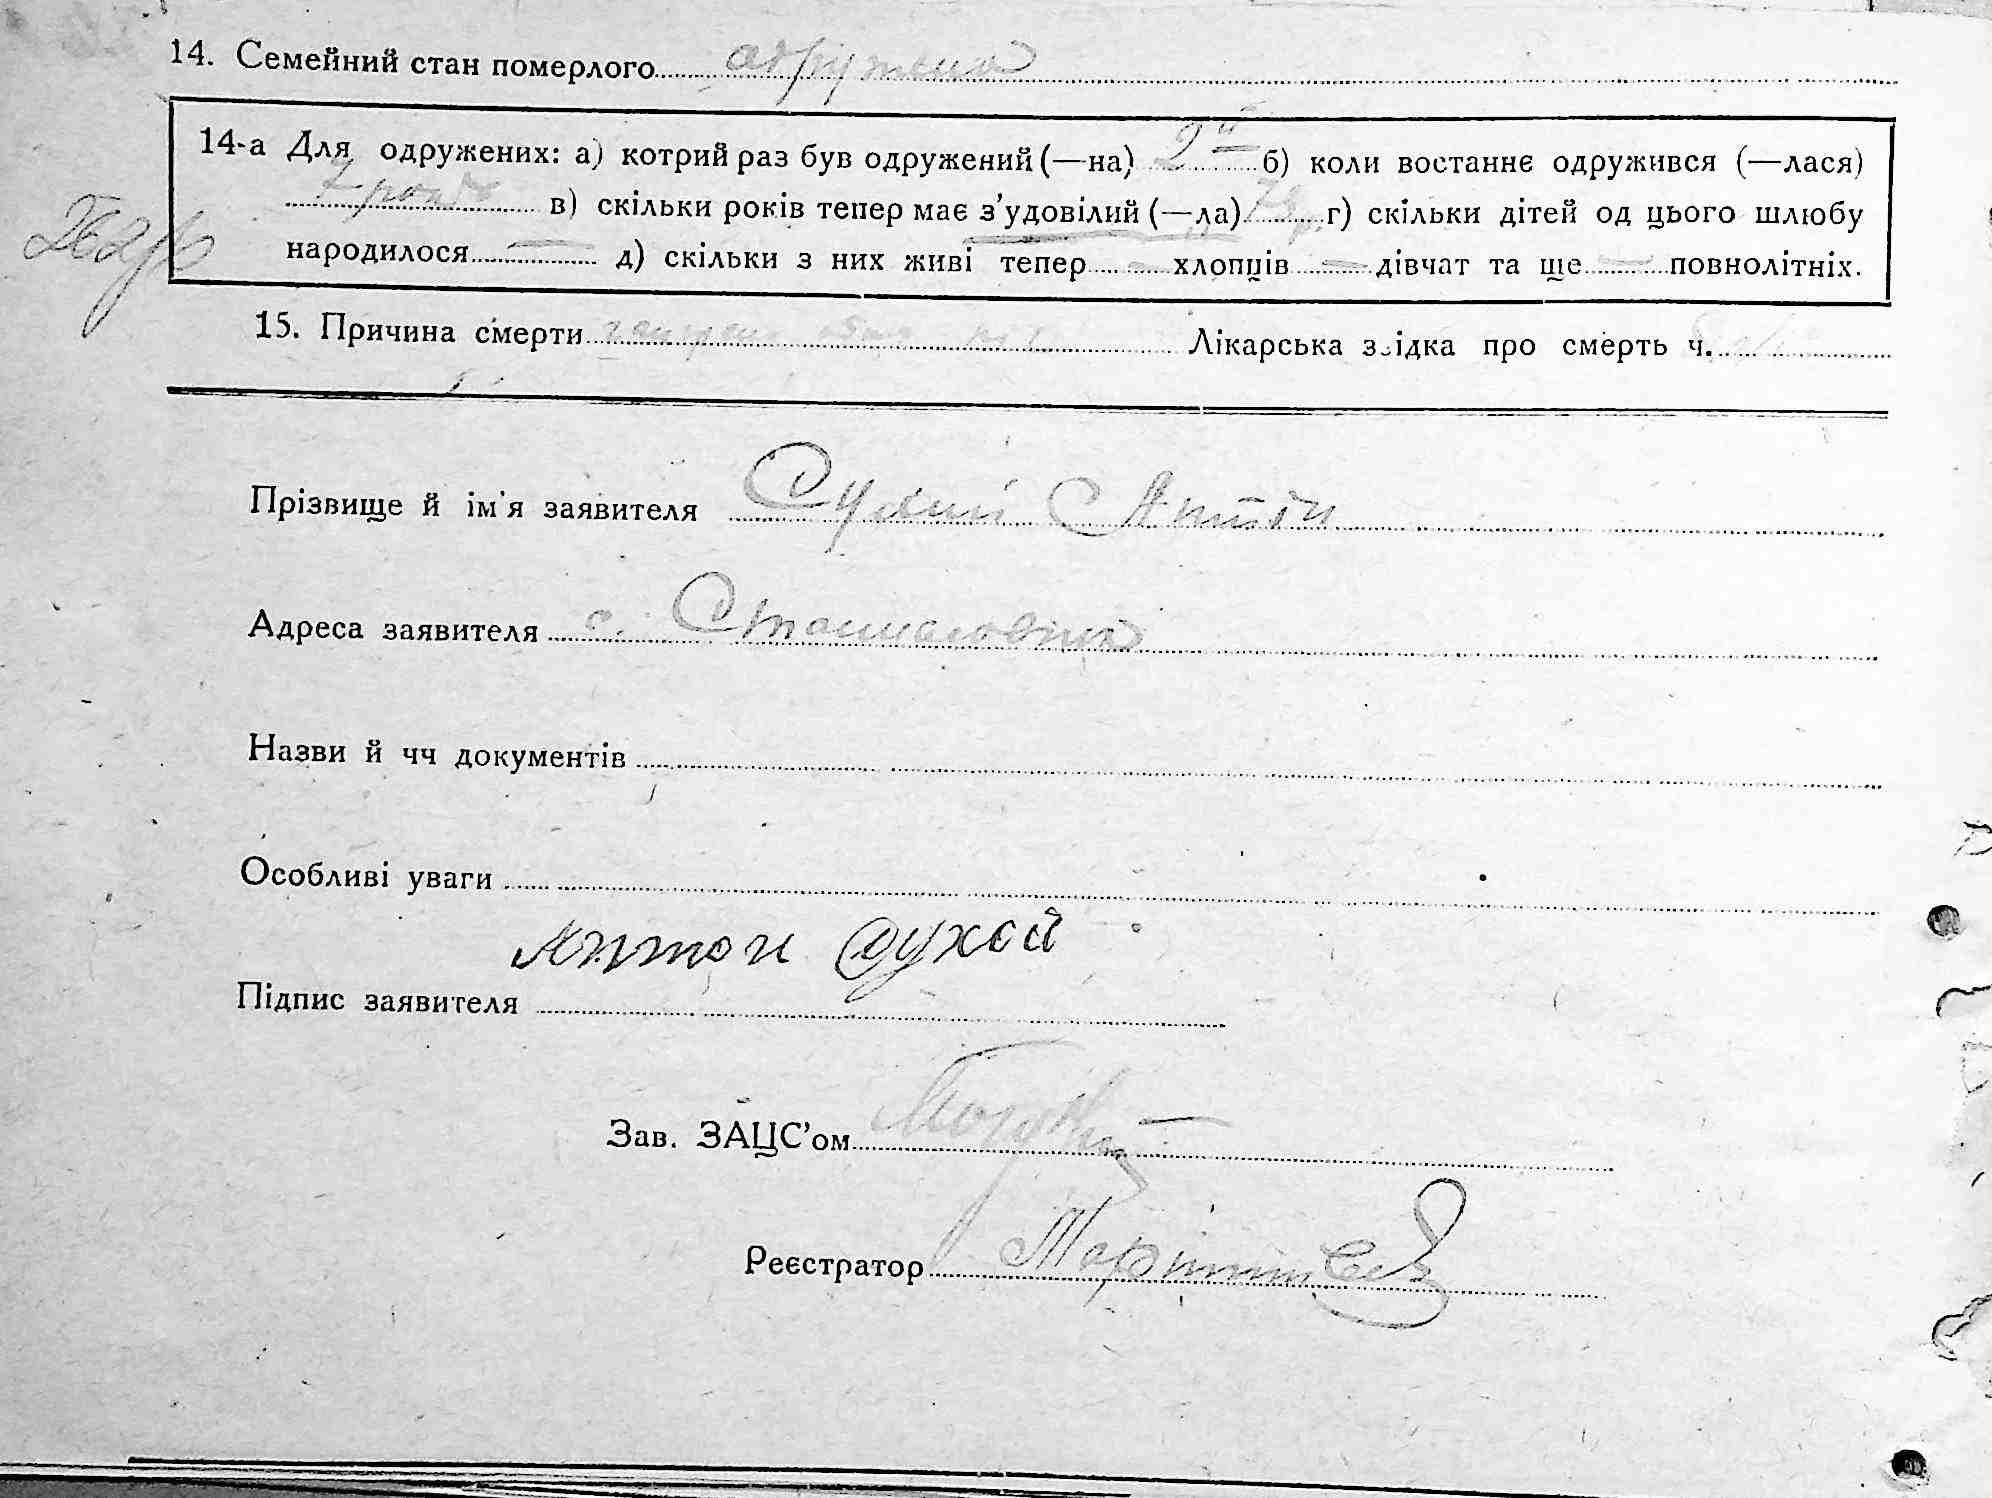 14. Семейний стан померлого одружена
14-а Для одружених: а) котрий раз був одружений (—на) 2й б) коли востаннє одружився (—лася)
7 років в) скільки років тепер має з’удовілий (—ла) г) скільки дітей од цього шлюбу
народилося — д) скільки з них живі тепер — хлопців — дівчат та ще — повнолітніх.
15. Причина смерти Лікарська звідка про смерть ч.
Прізвище й ім'я заявителя Сухий Антін
Адреса заявителя с.
Назви й чч документів
Особливі уваги
Антон Сухой
Підпис заявителя
Зав. ЗАЦС’ом
Реєстратор